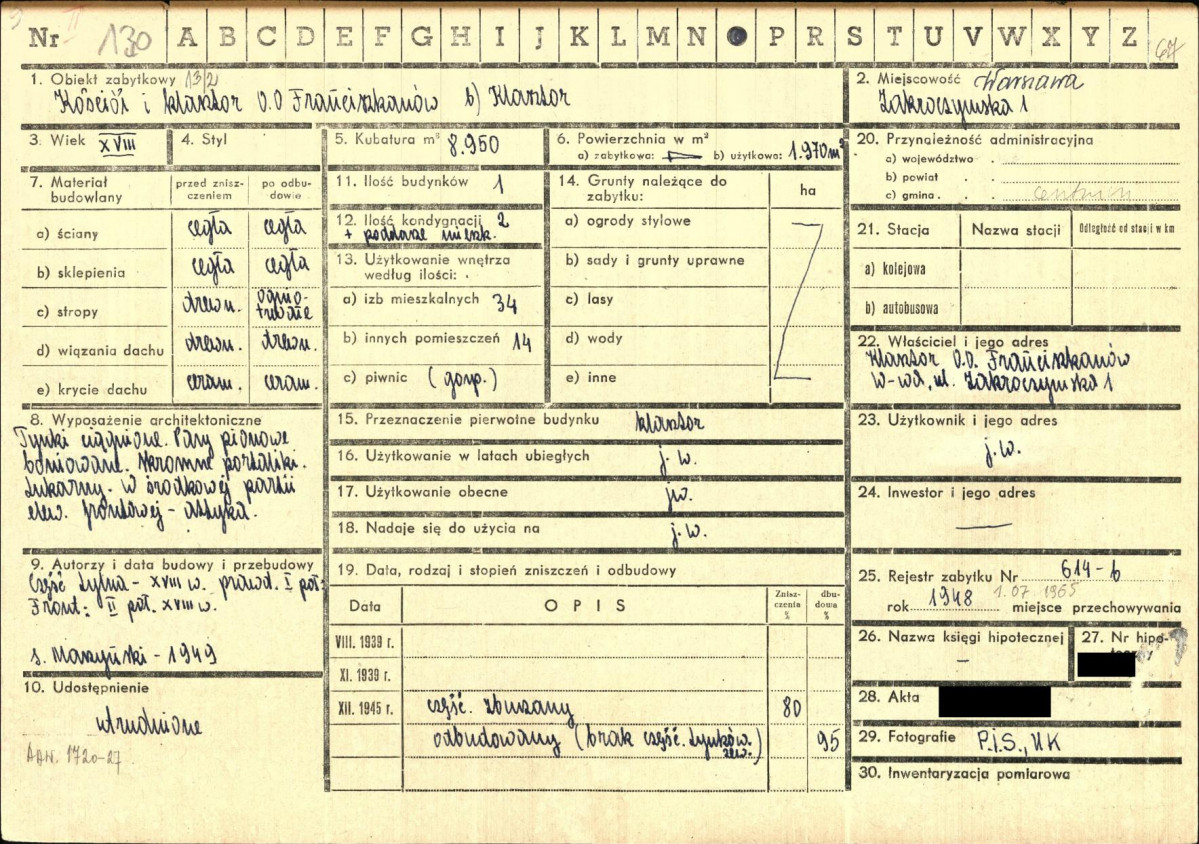 Nr 130 A B C D E F G H I J K L M N P R S T U V W X Y Z 67
1. Obiekt zabytkowy 13/2
Kościół i klasztor O.O Franciszkanów b) Klasztor
2. Miejscowość Warszawa
Zakroczymska 1
3. Wiek XVIII
4. Styl
5. Kubatura m³ 8.950
6. Powierzchnia w m²
a) zabytkowa: b) użytkowa: 1.970m²
7. Materiał budowlany
przed zniszczeniem
po odbudowie
a) ściany cegła cegła
b) sklepienia cegła cegła
c) stropy drewn. ognio-trwałe
d) wiązania dachu drewn. drewn.
e) krycie dachu ceram. ceram.
8. Wyposażenie architektoniczne
Tynki ciągnione. Pasy pionowe
boniowane. Skromne portaliki.
Lukarny. W środkowej partii
elew. frontowej - attyka.
9. Autorzy i data budowy i przebudowy
Część tylna - XVIII w. prawd. I poł.
Front: II poł. XVIII w.
s. Marzyński - 1949
10. Udostępnienie
utrudnione
AAN. 1720-27
11. Ilość budynków 1
12. Ilość kondygnacji 2
+ poddasze mieszk.
13. Użytkowanie wnętrza
według ilości:
a) izb mieszkalnych 34
b) innych pomieszczeń 14
c) piwnic (gosp.)
14. Grunty należące do
zabytku:
ha
a) ogrody stylowe
b) sady i grunty uprawne
c) lasy
d) wody
e) inne
15. Przeznaczenie pierwotne budynku klasztor
16. Użytkowanie w latach ubiegłych j. w.
17. Użytkowanie obecne jw.
18. Nadaje się do użycia na j. w.
19. Data, rodzaj i stopień zniszczeń i odbudowy
Data OPIS Zniszczenia % dbudowa %
VIII. 1939 r.
XI. 1939 r.
XII. 1945 r. część. zburzany 80
odbudowany (brak część. tynków zew.) 95
20. Przynależność administracyjna
a) województwo
b) powiat
c) gmina centrum
21. Stacja Nazwa stacji Odległość od stacji w km
a) kolejowa
b) autobusowa
22. Właściciel i jego adres
Klasztor O.O. Franciszkanów
W-wa, ul. Zakroczymska 1
23. Użytkownik i jego adres
j.w.
24. Inwestor i jego adres
25. Rejestr zabytku Nr 614-b
rok 1948 1.07 1965 miejsce przechowywania
26. Nazwa księgi hipotecznej
27. Nr hipo-
28. Akta
29. Fotografie P.I.S., UK
30. Inwentaryzacja pomiarowa